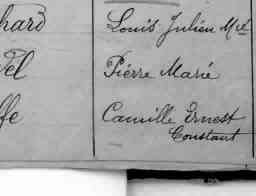 hard Louis Julien Mel
Pel Pierre Marie
ffe Camille Ernest
Constant